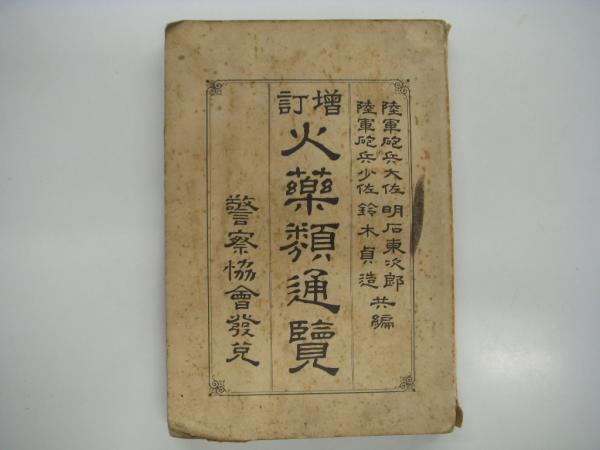 陸軍砲兵大佐 明石東次郎
陸軍砲兵少佐 鈴木貞造
共編
増訂
火藥類通覽
警察協會發兌